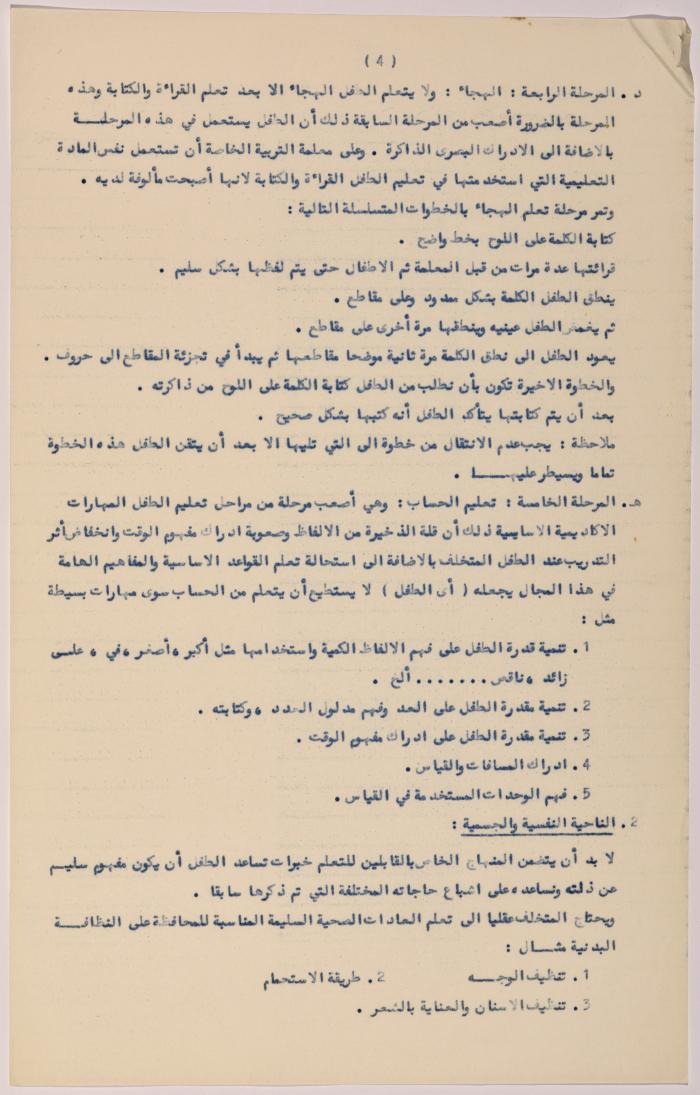 ( 4 )
د . المرحلة الرابعة : الهجاء : ولا يتعلم الطفل الهجاء الا بعد تعلم القراءة والكتابة وهذه
المرحلة بالضرورة أصعب من المرحلة السابقة ذلك أن الطفل يستعمل في هذه المرحلــة
بالاضافة الى الادراك البصرى الذاكرة . وعلى معلمة التربية الخاصة أن تستعمل نفس المادة
التعليمية التي استخدمتها في تعليم الطفل القراءة والكتابة لانها أصبحت مألوفة لديه .
وتمر مرحلة تعلم الهجاء بالخطوات المتسلسلة التالية :
كتابة الكلمة على اللوح بخط واضح .
قرائتها عدة مرات من قبل المعلمة ثم الاطفال حتى يتم لفظها بشكل سليم .
ينطق الطفل الكلمة بشكل ممدود وعلى مقاطع .
ثم يغمض الطفل عينيه وينطقها مرة أخرى على مقاطع .
يعود الطفل الى نطق الكلمة مرة ثانية موضحا مقاطعها ثم يبدأ في تجزئة المقاطع الى حروف .
والخطوة الاخيرة تكون بأن نطلب من الطفل كتابة الكلمة على اللوح من ذاكرته .
بعد أن يتم كتابتها يتأكد الطفل أنه كتبها بشكل صحيح .
ملاحظة : يجب عدم الانتقال من خطوة الى التي تليها الا بعد أن يتقن الطفل هذه الخطوة
تماما ويسيطر عليهــــا .
هـ . المرحلة الخامسة : تعليم الحساب : وهي أصعب مرحلة من مراحل تعليم الطفل المهارات
الاكاديمية الاساسية ذلك أن قلة الذخيرة من الالفاظ وصعوبة ادراك مفهوم الوقت وانخفاض أثر
التدريب عند الطفل المتخلف بالاضافة الى استحالة تعلم القواعد الاساسية والمفاهيم الهامة
في هذا المجال يجعله ( أى الطفل ) لا يستطيع أن يتعلم من الحساب سوى مهارات بسيطة
مثل :
1 . تنمية قدرة الطفل على فهم الالفاظ الكمية واستخدامها مثل أكبر ، أصغر ، في ، علـى
زائد ، ناقص ....... ألخ .
2 . تنمية مقدرة الطفل على العد وفهم مدلول العدد ، وكتابته .
3 . تنمية مقدرة الطفل على ادراك مفهوم الوقت .
4 . ادراك المسافات والقياس .
5 . فهم الوحدات المستخدمة في القياس .
2 . الناحية النفسية والجسمية :
لا بد أن يتضمن المنهاج الخاص بالقابلين للتعلم خبرات تساعد الطفل أن يكون مفهوم سليـم
عن ذاته ونساعده على اشباع حاجاته المختلفة التي تم ذكرها سابقا .
ويحتاج المتخلف عقليا الى تعلم العادات الصحية السليمة المناسبة للمحافظة على النظافــة
البدنية مثــال :
1 . تنظيف الوجــه 2 . طريقة الاستحمام
3 . تنظيف الاسنان والعناية بالشعر .